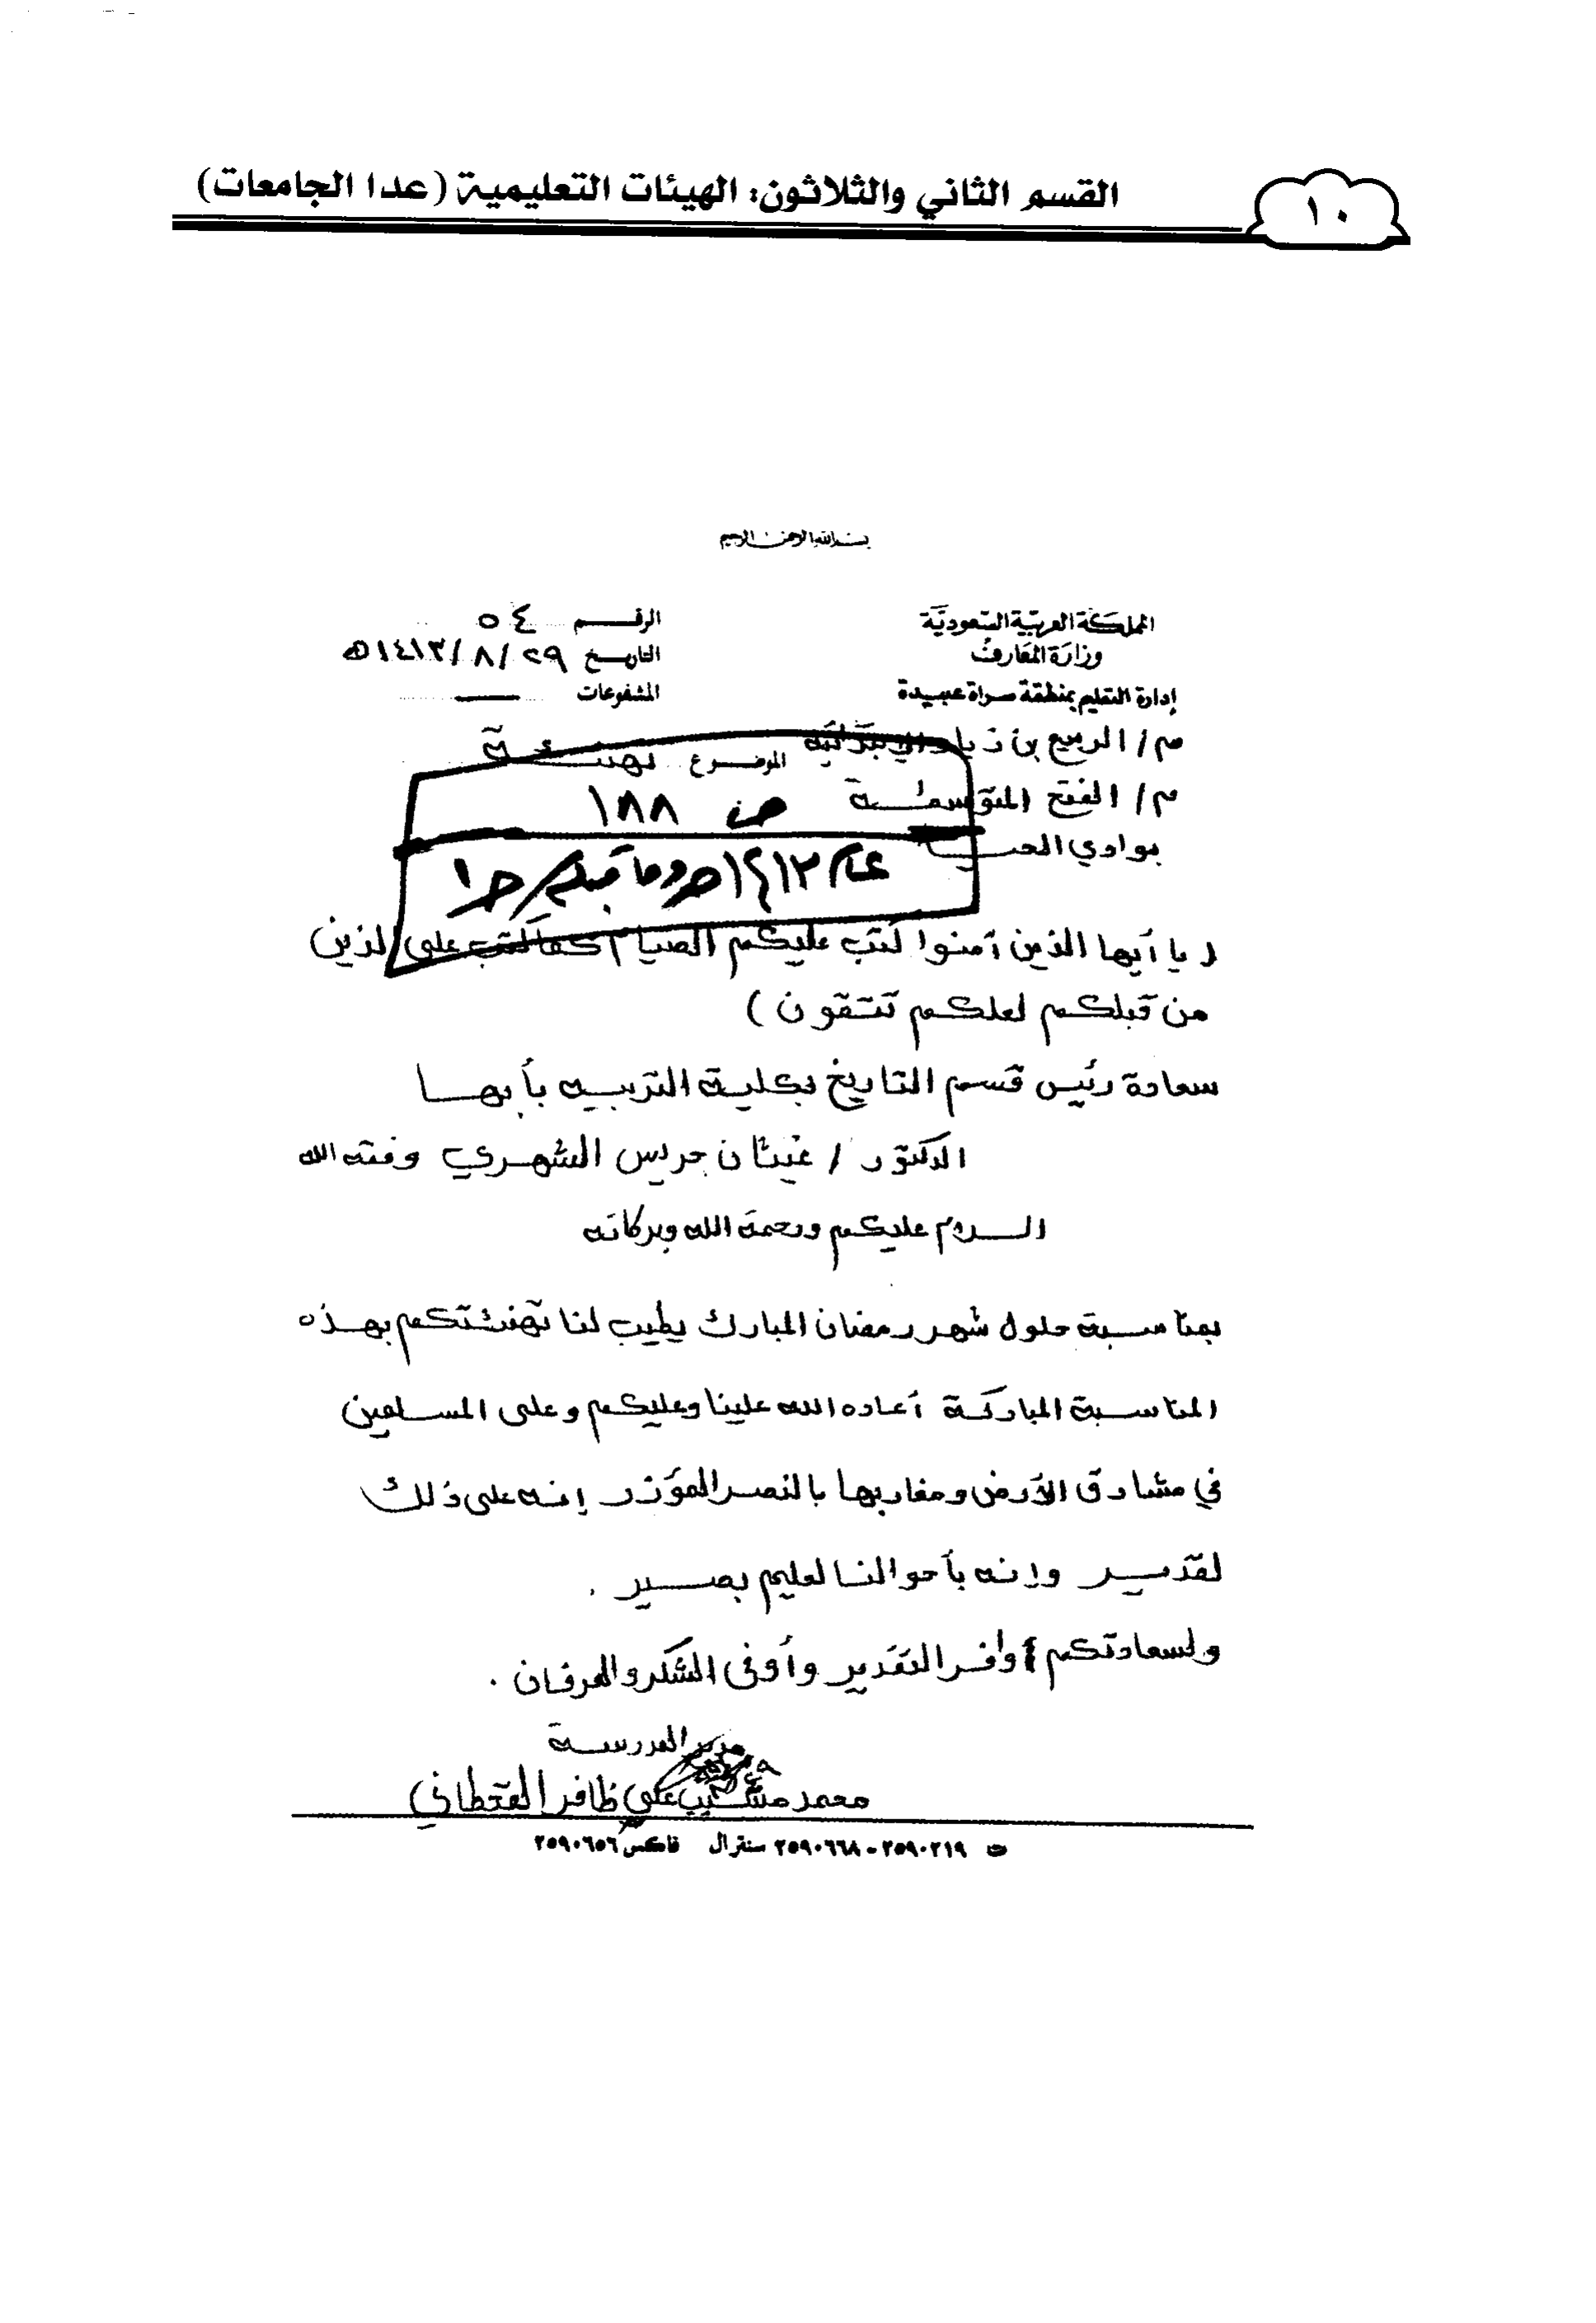 ١٠
القسم الثاني والثلاثون: الهيئات التعليمية (عدا الجامعات)
بسم الله الرحمن الرحيم
المملكة العربية السعودية
وزارة المعارف
إدارة التعليم بمنطقة سراة عبيدة
م/ الربيع بن زياد الإبتدائية
م/ الفتح المتوسطة
بوادي الحيا
الرقم ٥٤
التاريخ ٢٩/٨/١٤١٣هـ
المشفوعات
الموضوع تهنئة
ص ١٨٨
عام ١٤١٣هـ وما قبله / جـ١
( يا أيها الذين آمنوا كتب عليكم الصيام كما كتب على الذين
من قبلكم لعلكم تتقون )
سعادة رئيس قسم التاريخ بكلية التربيه بأبها
الدكتور / غيثان جريس الشهري وفقه الله
السلام عليكم ورحمة الله وبركاته
بمناسبة حلول شهر رمضان المبارك يطيب لنا تهنئتكم بهذه
المناسبة المباركة أعاده الله علينا وعليكم وعلى المسلمين
في مشارق الأرض ومغاربها بالنصر المؤزر إنه على ذلك
لقدير وإنه بأحوالنا لعليم بصير .
ولسعادتكم وافر التقدير وأوفى الشكر والعرفان .
مدير المدرسة
محمد مشبب علي ظافر القحطاني
ت ٢٥٩٠٢١٩ - ٢٥٩٠٦٦٨ سنترال فاكس ٢٥٩٠٦٥٦